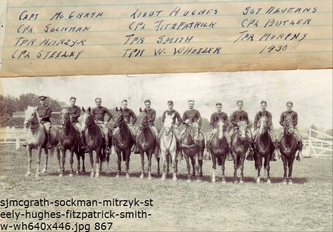 Capt McGrath Lieut Hughes Sgt
Cpl Sockman Cpl Fitzpatrick Cpl Butler
Tpr Mitrzyk Tpr Smith Tpr Murphy
Cpl Steeley Tpr W. Wheeler 1930
sjmcgrath-sockman-mitrzyk-st
eely-hughes-fitzpatrick-smith-
w-wh640x446.jpg 867